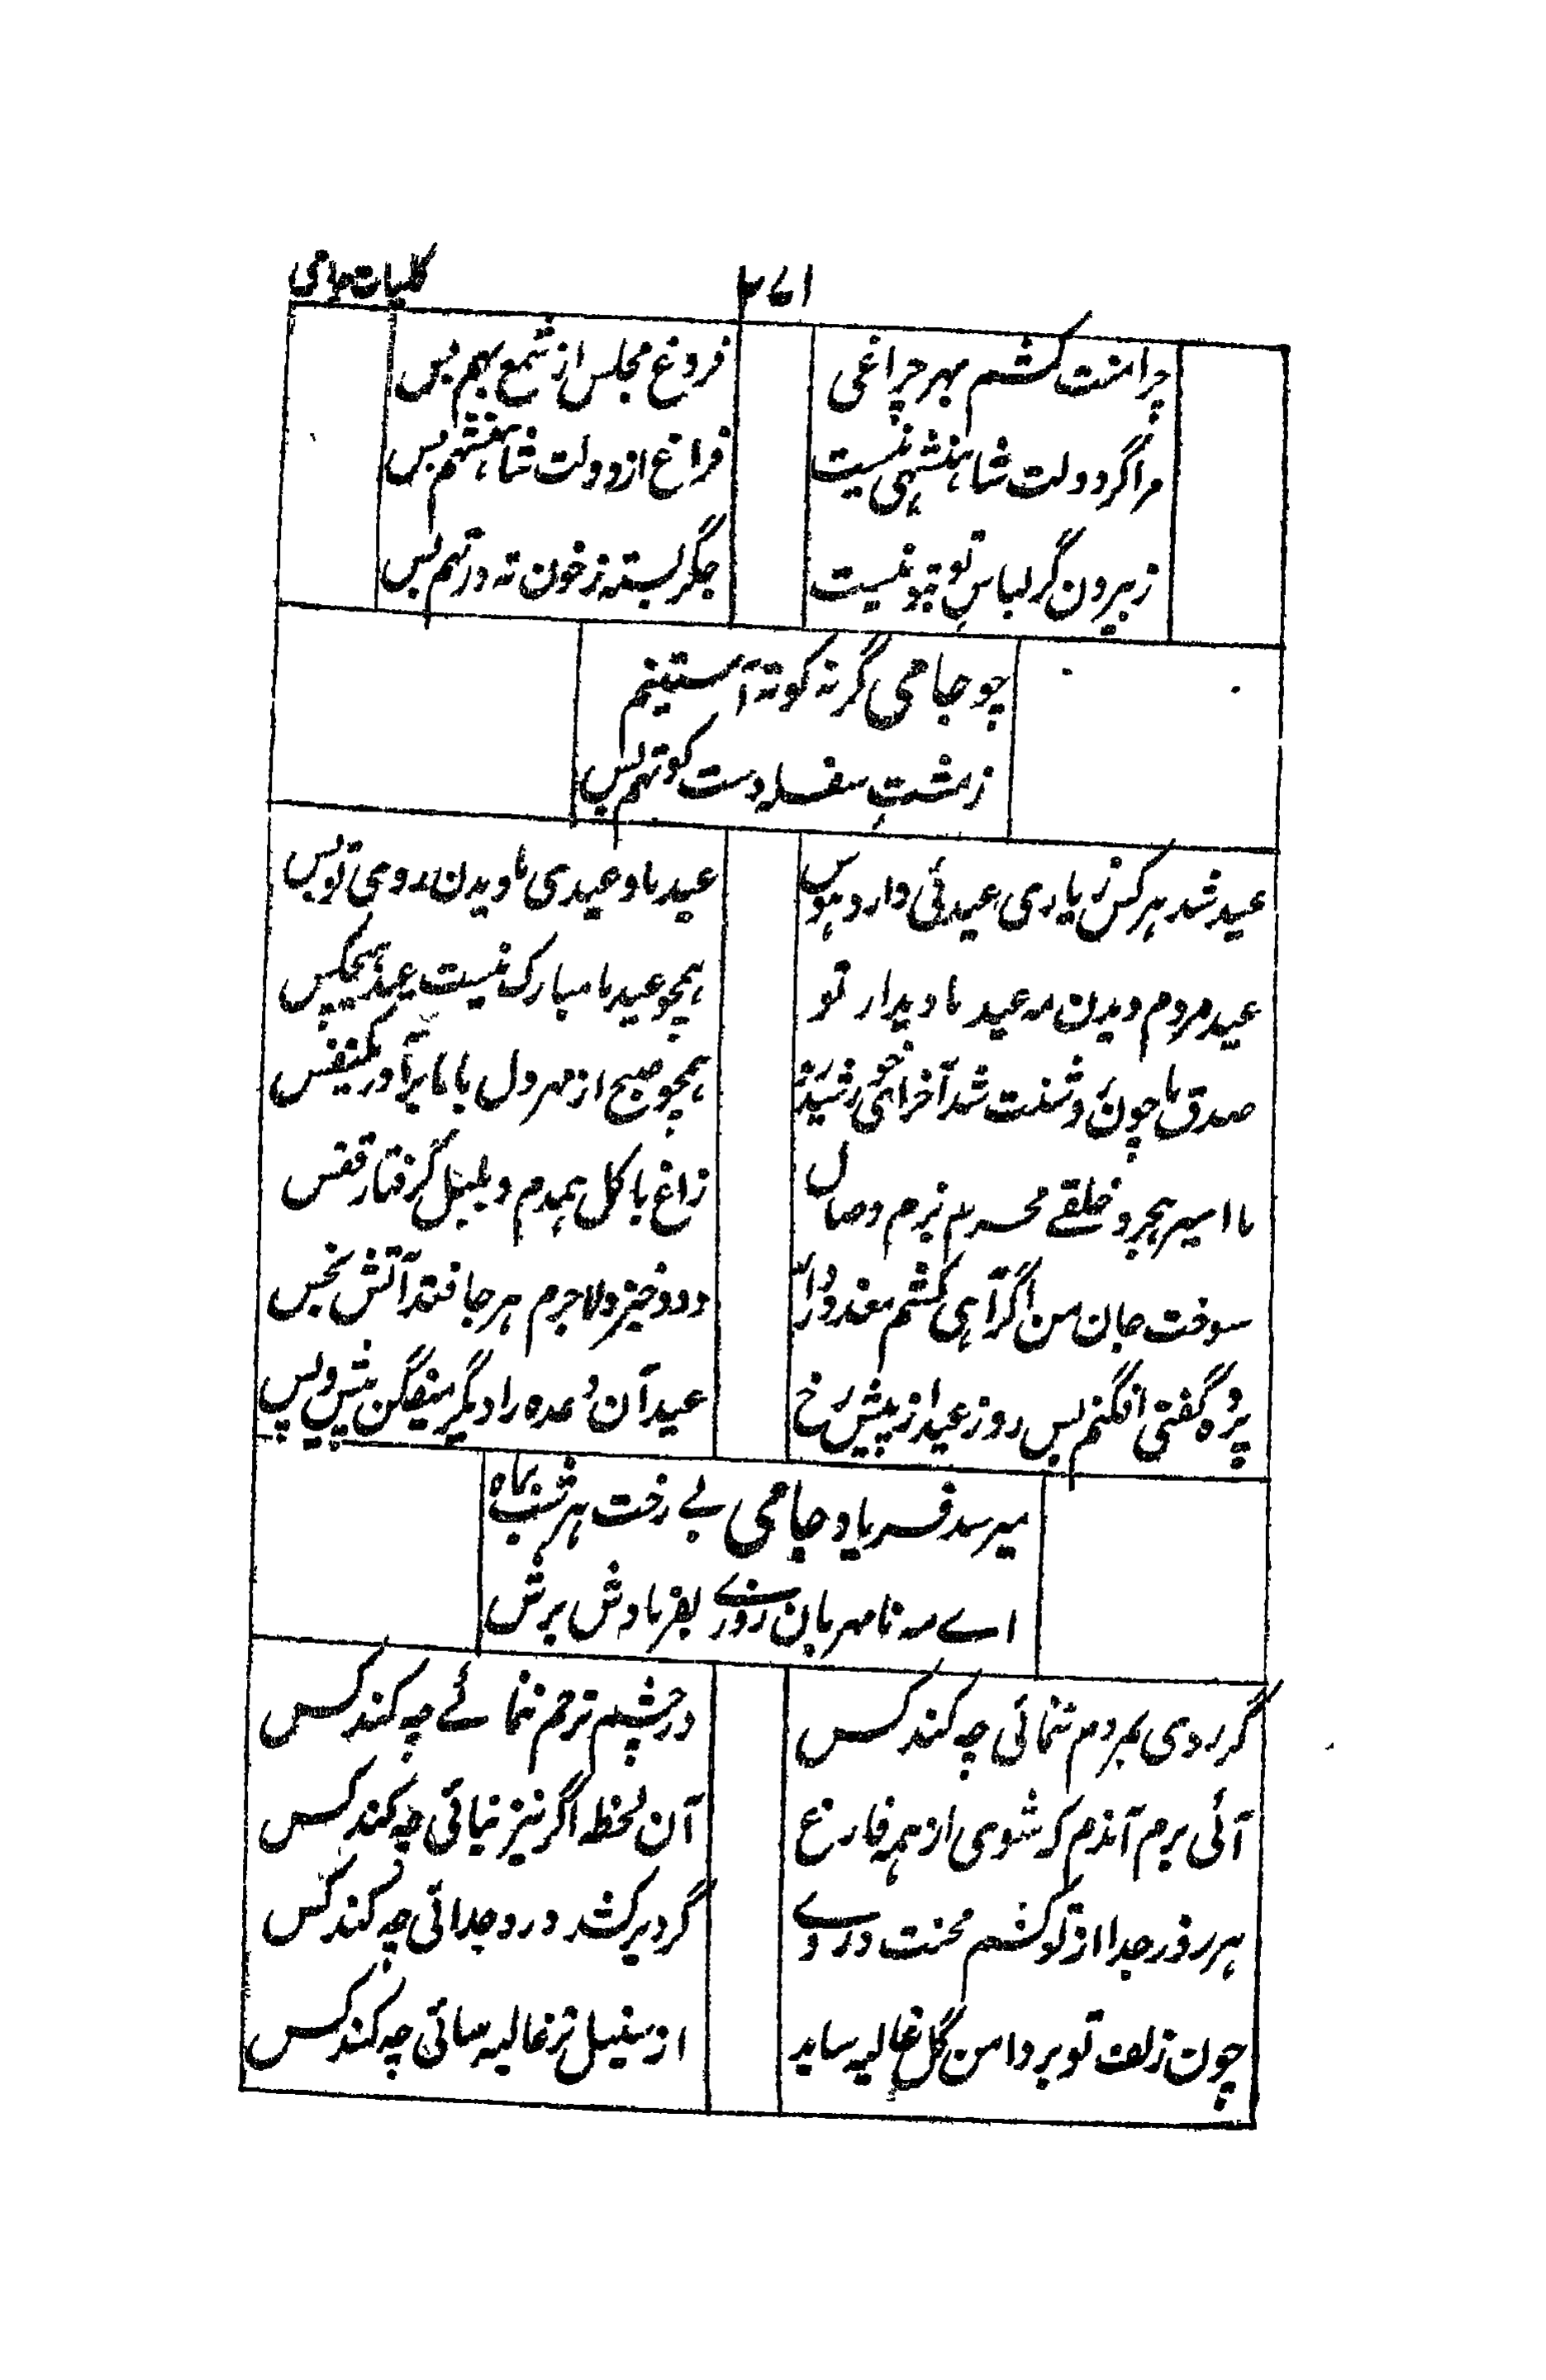 کلیات جامی
چرا منت کشم بهر چراغی
فروغ مجلس از شمع بهم بس
مرا گر دولت شاهنشهی نیست
فراغ از دولت شاهنشهم بس
ز بیرون گر لباسِ تو بتو نیست
جگر بسته ز خون ته در تهم بس
چو جامی گر نه کوته آستینم
ز مشتِ سفله دست کوتهم بس
عید شد هر کس ز یاری عیدئی دارد هوس
عید ما و عیدی ما دیدن روی تو بس
عید مردم دیدن مه عید ما دیدار تو
همچو عید ما مبارک نیست عید هیچکس
صدق ما چون روشنت شد آخر ای خورشید رو
همچو صبح از مهر دل با ما برآور یکنفس
ما اسیر هجر و خلقے محرم بزم وصال
زاغ با گل همدم و بلبل گرفتار قفس
سوخت جان من اگر آهی کشم معذور دار
دود خیزد لاجرم هر جا فتد آتش بخس
پرده گفتی افگنم پس روز عید از پیش رخ
عید آن وعده را دیگر میفگن پیش و پس
میرسد فریاد جامی بے رخت هر شب بماه
اے مه نامهربان روزے بفریادش برس
گر روی بمردم ننمائی چه کند کس
در چشم ترحم ننمائے چه کند کس
آئی برم آندم که شوی از همه فارغ
آن لحظه اگر نیز نیائی چه کند کس
هر روز جدا از تو کشم محنت دردے
گر دیر کشد درد جدائی چه کند کس
چون زلف تو بر دامن گل غالیه ساید
از سنبل تر غالیه سائی چه کند کس